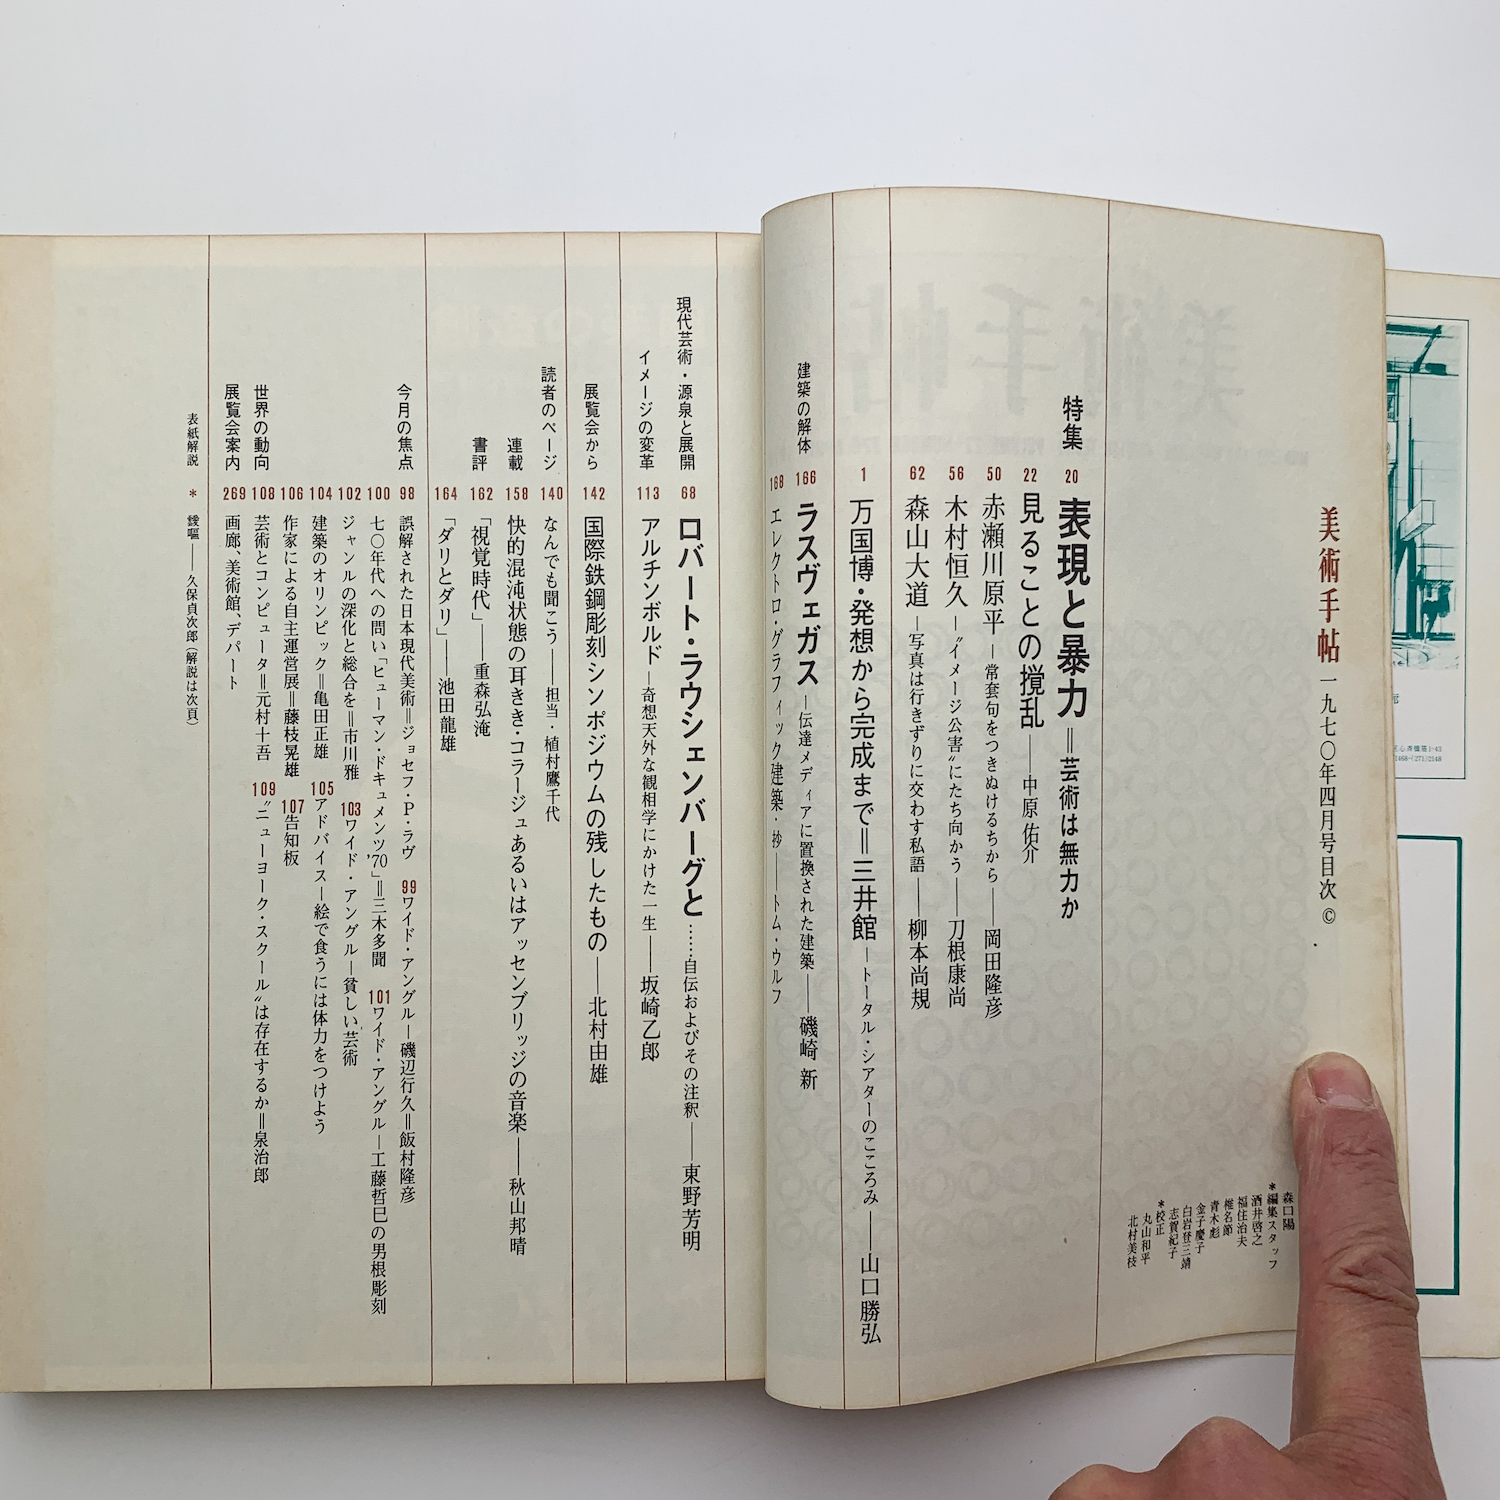 美術手帖 一九七〇年四月号目次 ©
森口陽
*編集スタッフ
酒井啓之
福住治夫
椎名節
青木彪
金子慶子
白岩登三靖
志賀紀子
*校正
丸山和平
北村美枝
特集
20 表現と暴力=芸術は無力か
22 見ることの撹乱——中原佑介
50 赤瀬川原平—常套句をつきぬけるちから——岡田隆彦
56 木村恒久—〝イメージ公害〟にたち向かう——刀根康尚
62 森山大道—写真は行きずりに交わす私語——柳本尚規
1 万国博・発想から完成まで=三井館—トータル・シアターのこころみ——山口勝弘
建築の解体
166 ラスヴェガス—伝達メディアに置換された建築——磯崎 新
168 エレクトロ・グラフィック建築・抄——トム・ウルフ
現代芸術・源泉と展開
68 ロバート・ラウシェンバーグと……自伝およびその注釈——東野芳明
イメージの変革
113 アルチンボルド—奇想天外な観相学にかけた一生——坂崎乙郎
展覧会から
142 国際鉄鋼彫刻シンポジウムの残したもの——北村由雄
読者のページ
140 なんでも聞こう——担当・植村鷹千代
連載
158 快的混沌状態の耳きき・コラージュあるいはアッセンブリッジの音楽——秋山邦晴
書評
162 「視覚時代」——重森弘淹
164 「ダリとダリ」——池田龍雄
今月の焦点
98 誤解された日本現代美術=ジョセフ・P・ラヴ 99 ワイド・アングル—磯辺行久=飯村隆彦
100 七〇年代への問い「ヒューマン・ドキュメンツ'70」=三木多聞 101 ワイド・アングル—工藤哲巳の男根彫刻
102 ジャンルの深化と総合を=市川雅 103 ワイド・アングル—貧しい芸術
104 建築のオリンピック=亀田正雄 105 アドバイス—絵で食うには体力をつけよう
106 作家による自主運営展=藤枝晃雄 107 告知板
世界の動向
108 芸術とコンピュータ=元村十吾 109 〝ニューヨーク・スクール〟は存在するか=泉治郎
展覧会案内
269 画廊、美術館、デパート
表紙解説 * ——久保貞次郎(解説は次頁)